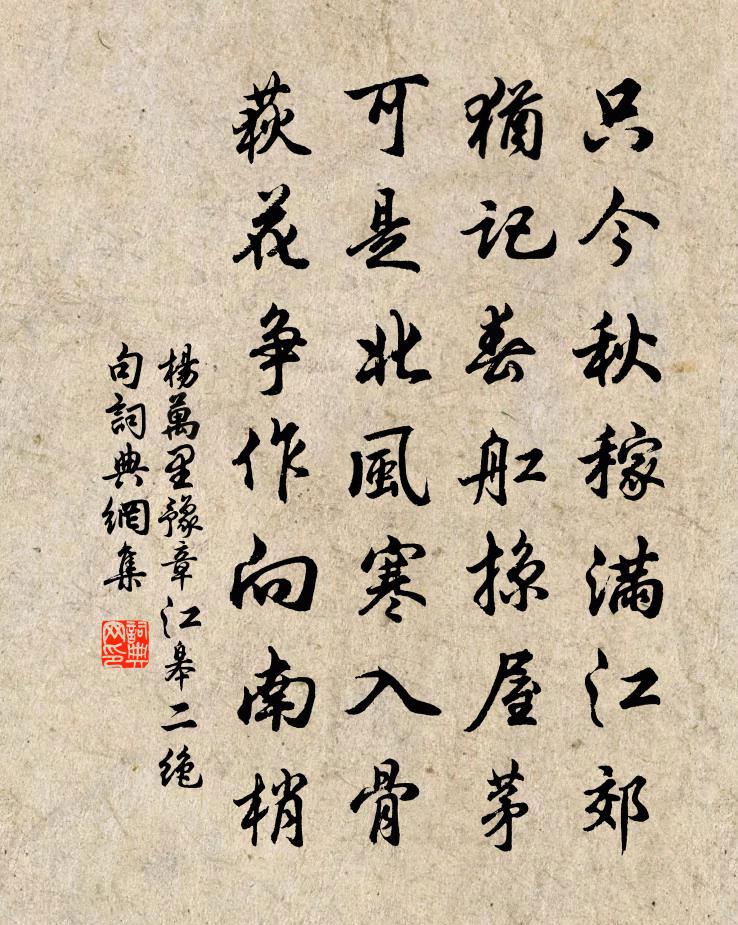 只今秋稼滿江郊
猶記春舡掠屋茅
可是北風寒入骨
荻花争作向南梢
楊萬里豫章江皋二绝
句詞典網集
詞典
网印